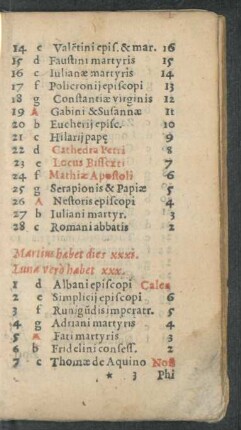 14 c Valētini epis. & mar. 16
15 d Faustini martyris 15
16 e Iulianæ martyris 14
17 f Policronij episcopi 13
18 g Constantiæ virginis 12
19 A Gabini & Susannæ 11
20 b Eucherij episc. 10
21 c Hilarij papę 9
22 d Cathedra Petri 8
23 e Locus Bissexti 7
24 f Mathiæ Apostoli 6
25 g Serapionis & Papiæ 5
26 A Nestoris episcopi 4
27 b Iuliani martyr. 3
28 c Romani abbatis 2
Martius habet dies xxxi.
Luna verò habet xxx.
1 d Albani episcopi Calen
2 e Simplicij episcopi 6
3 f Runigūdis imperatr. 5
4 g Adriani martyris 4
5 A Fati martyris 3
6 b Fridelini confess. 2
7 c Thomæ de Aquino Non
* 3 Phi